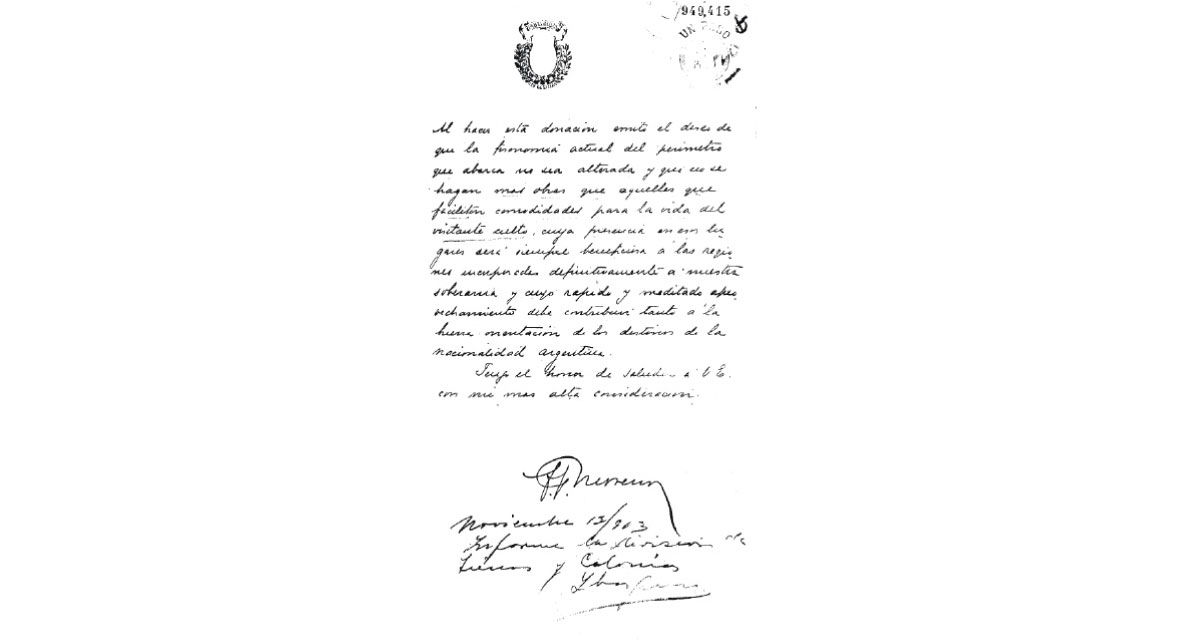 949,415
UN PESO
Al hacer esta donacion emito el deseo de
que la fisonomia actual del perimetro
que abarca no sea alterada y que no se
hagan mas obras que aquellas que
faciliten comodidades para la vida del
visitante culto, cuya presencia en esos lu
gares será siempre beneficiosa á las regio
nes incorporadas definitivamente a nuestra
soberania y cuyo rapido y meditado apro
vechamiento debe contribuir tanto á la
buena orientación de los destinos de la
nacionalidad argentina.
Tengo el honor de saludar a V.E.
con mi mas alta consideracion.
F.P. Moreno
Noviembre 13/903
Informe la división de
Tierras y Colonias